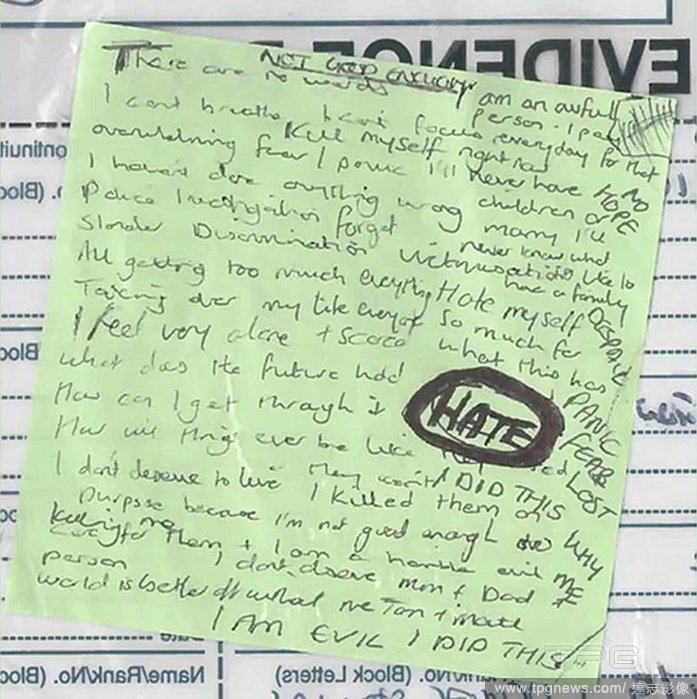 EVIDENCE
NOT GOOD ENOUGH
There are no words
am an awful
person. I pay
I can't breathe I can't focus everyday for that
Kill myself right now
overwhelming fear / panic I'll never have NO
HOPE
I haven't done anything wrong children or
marry I'll
Police Investigation forget never know what
Slander Discrimination Victimisation its like to
have a family
All getting too much everything Hate myself DESPAIR
Taking over my life everyday so much for
I feel very alone + scared what this has
What does the future hold
PANIC
How can I get through it
HATE
FEAR
How will things ever be like
LOST
they won't I DID THIS
I don't deserve to live I killed them on
WHY
purpose because I'm not good enough to
care for them + I am a horrible evil
ME
Killing me
person I don't deserve mum + Dad
world is better off without me
I AM EVIL I DID THIS
Name/Rank/No. (Block Letters)
Date
TPG
www.tpgnews.com/達志影像